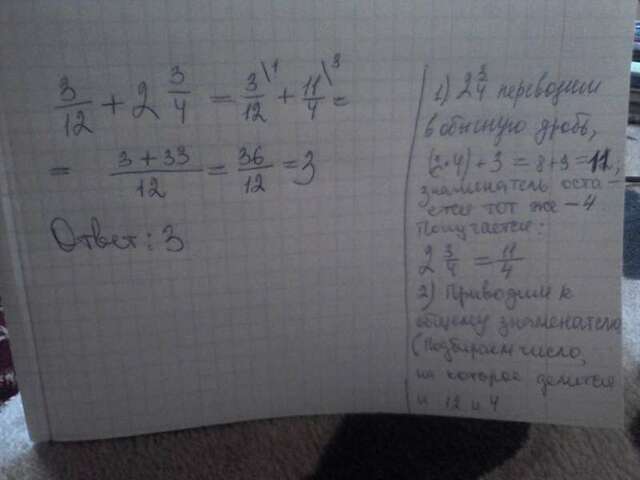 3/12 + 2 3/4 = 3\1/12 + 11\3/4 =
= 3 + 33/12 = 36/12 = 3
Ответ: 3
1) 2 3/4 переводим
в обычную дробь,
(2·4) + 3 = 8+3 = 11,
знаминатель оста-
ется тот же – 4.
Получается:
2 3/4 = 11/4
2) Приводим к
общему знаменателю
(Подбираем число,
на которое делится
и 12 и 4